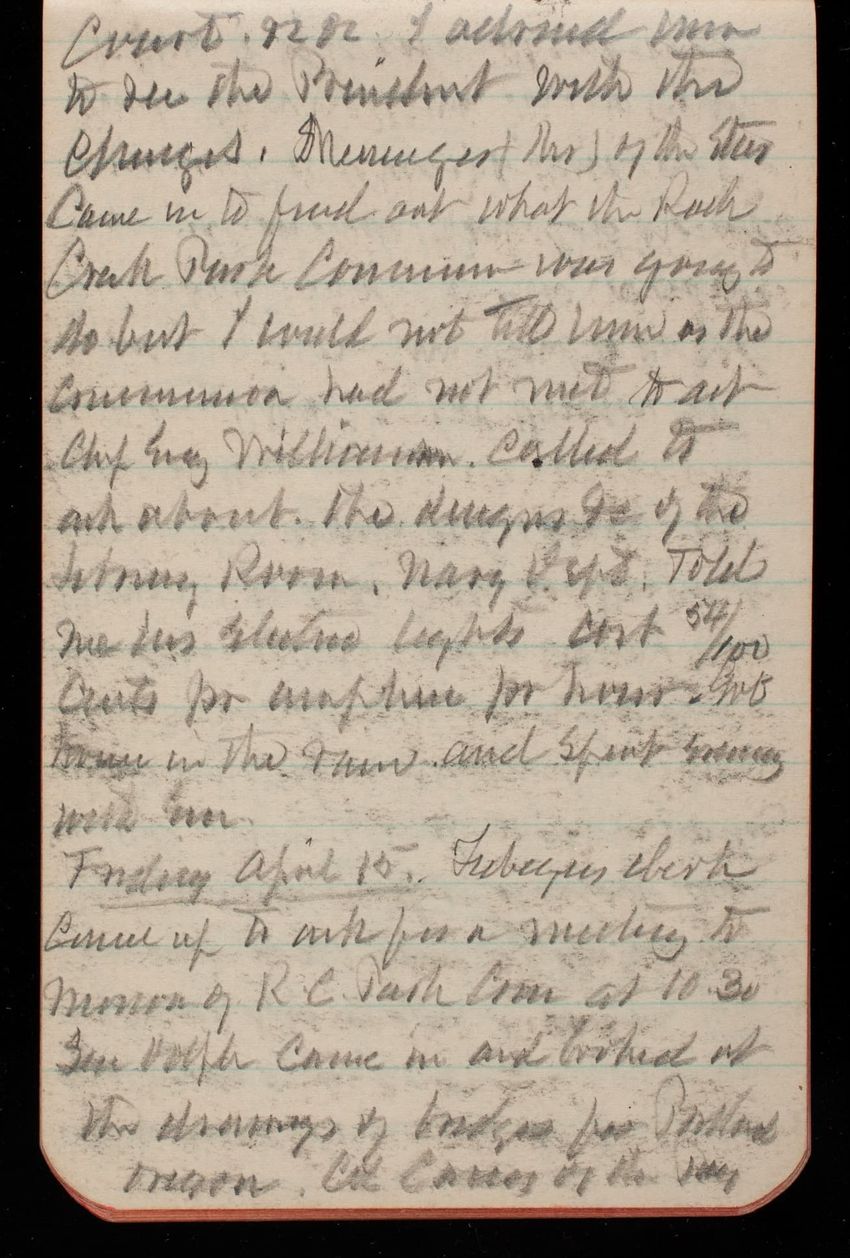 Court. &c &c I advised him
to see the President with the
Changes. Messenger (Thos) of the Star
Came in to find out what the Rock
Creek Park Commission was going to
do but I would not tell him as the
Commission had not met to act
Chf Eng Williamson. Called to
ask about. the designs &c of the
Library Room. Navy Dept. Told
me his Electric lights cost 54/100
Cents pr per hour. Got
home in the rain. and Spent Evening
with Em
Friday April 15. clerk
Came up to ask for a meeting to
morrow of R C Park Com at 10 30
Sen Dolph Came in and looked at
the drawings of bridges for Portland
Oregon. Col Carey of the Pay